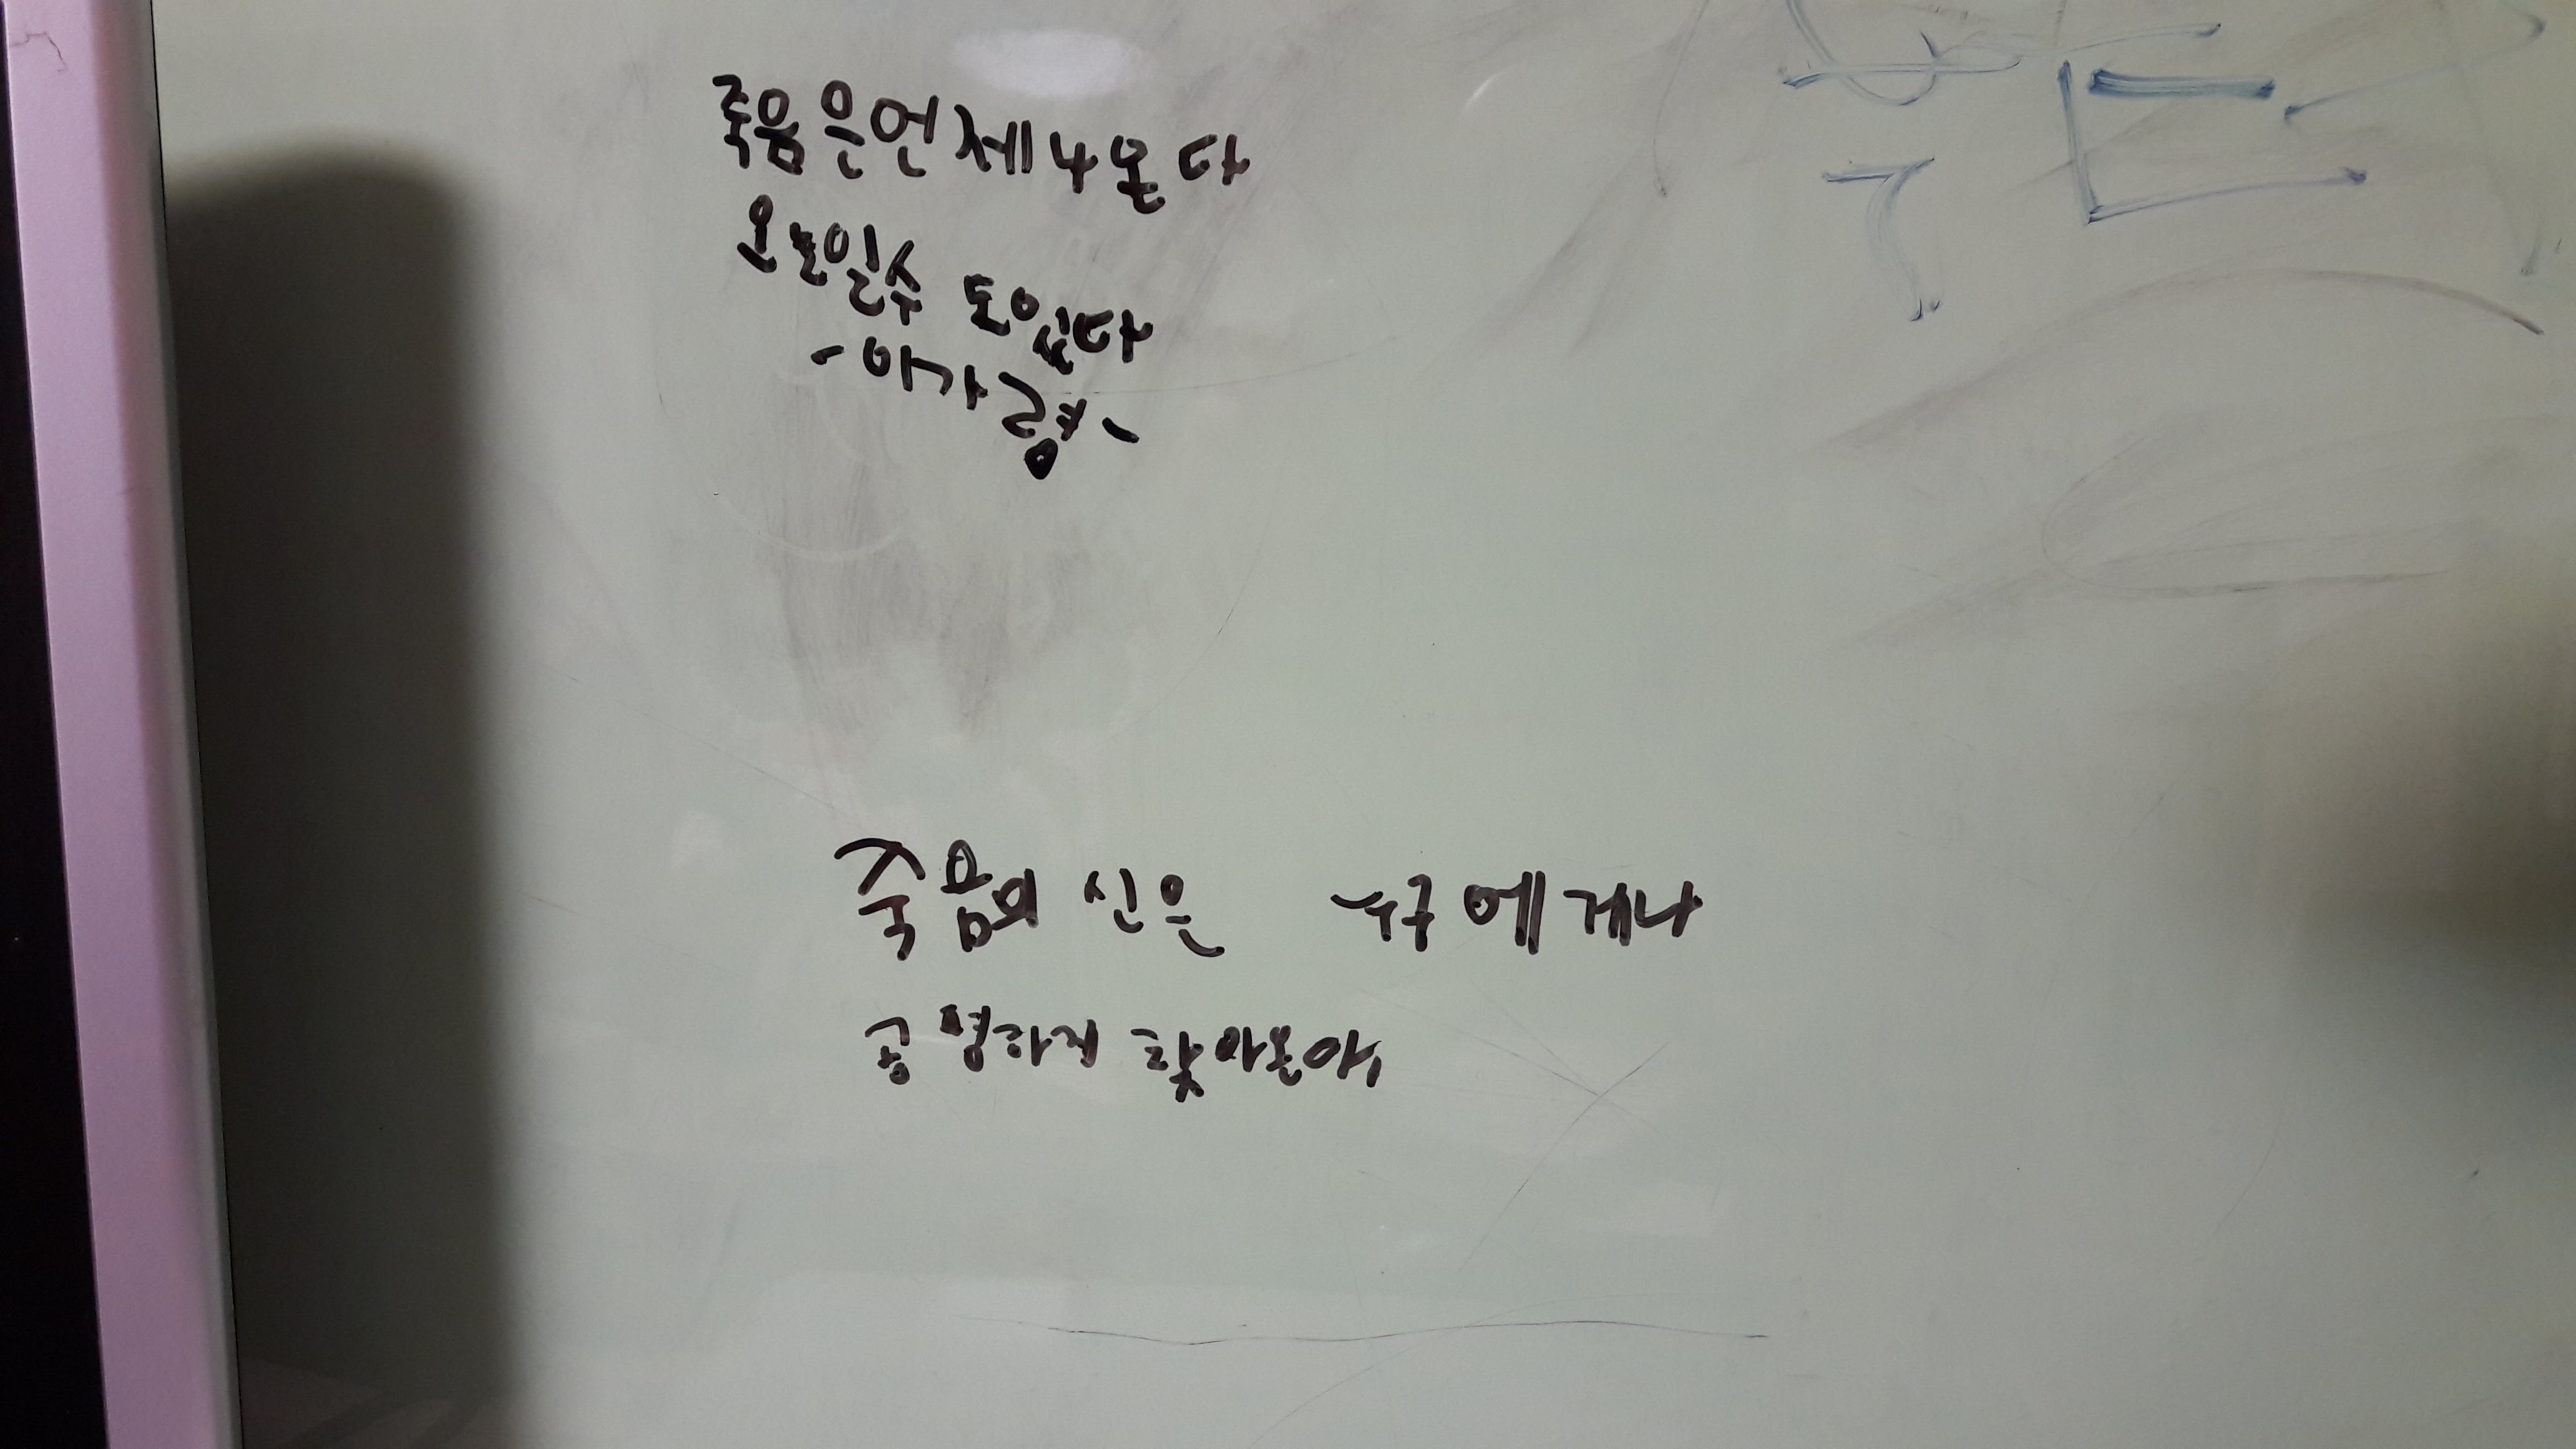 죽음은언제나온다
오늘일수 도있다
-이가령-
죽음의 신은 누구에게나
공평하게 찾아온어